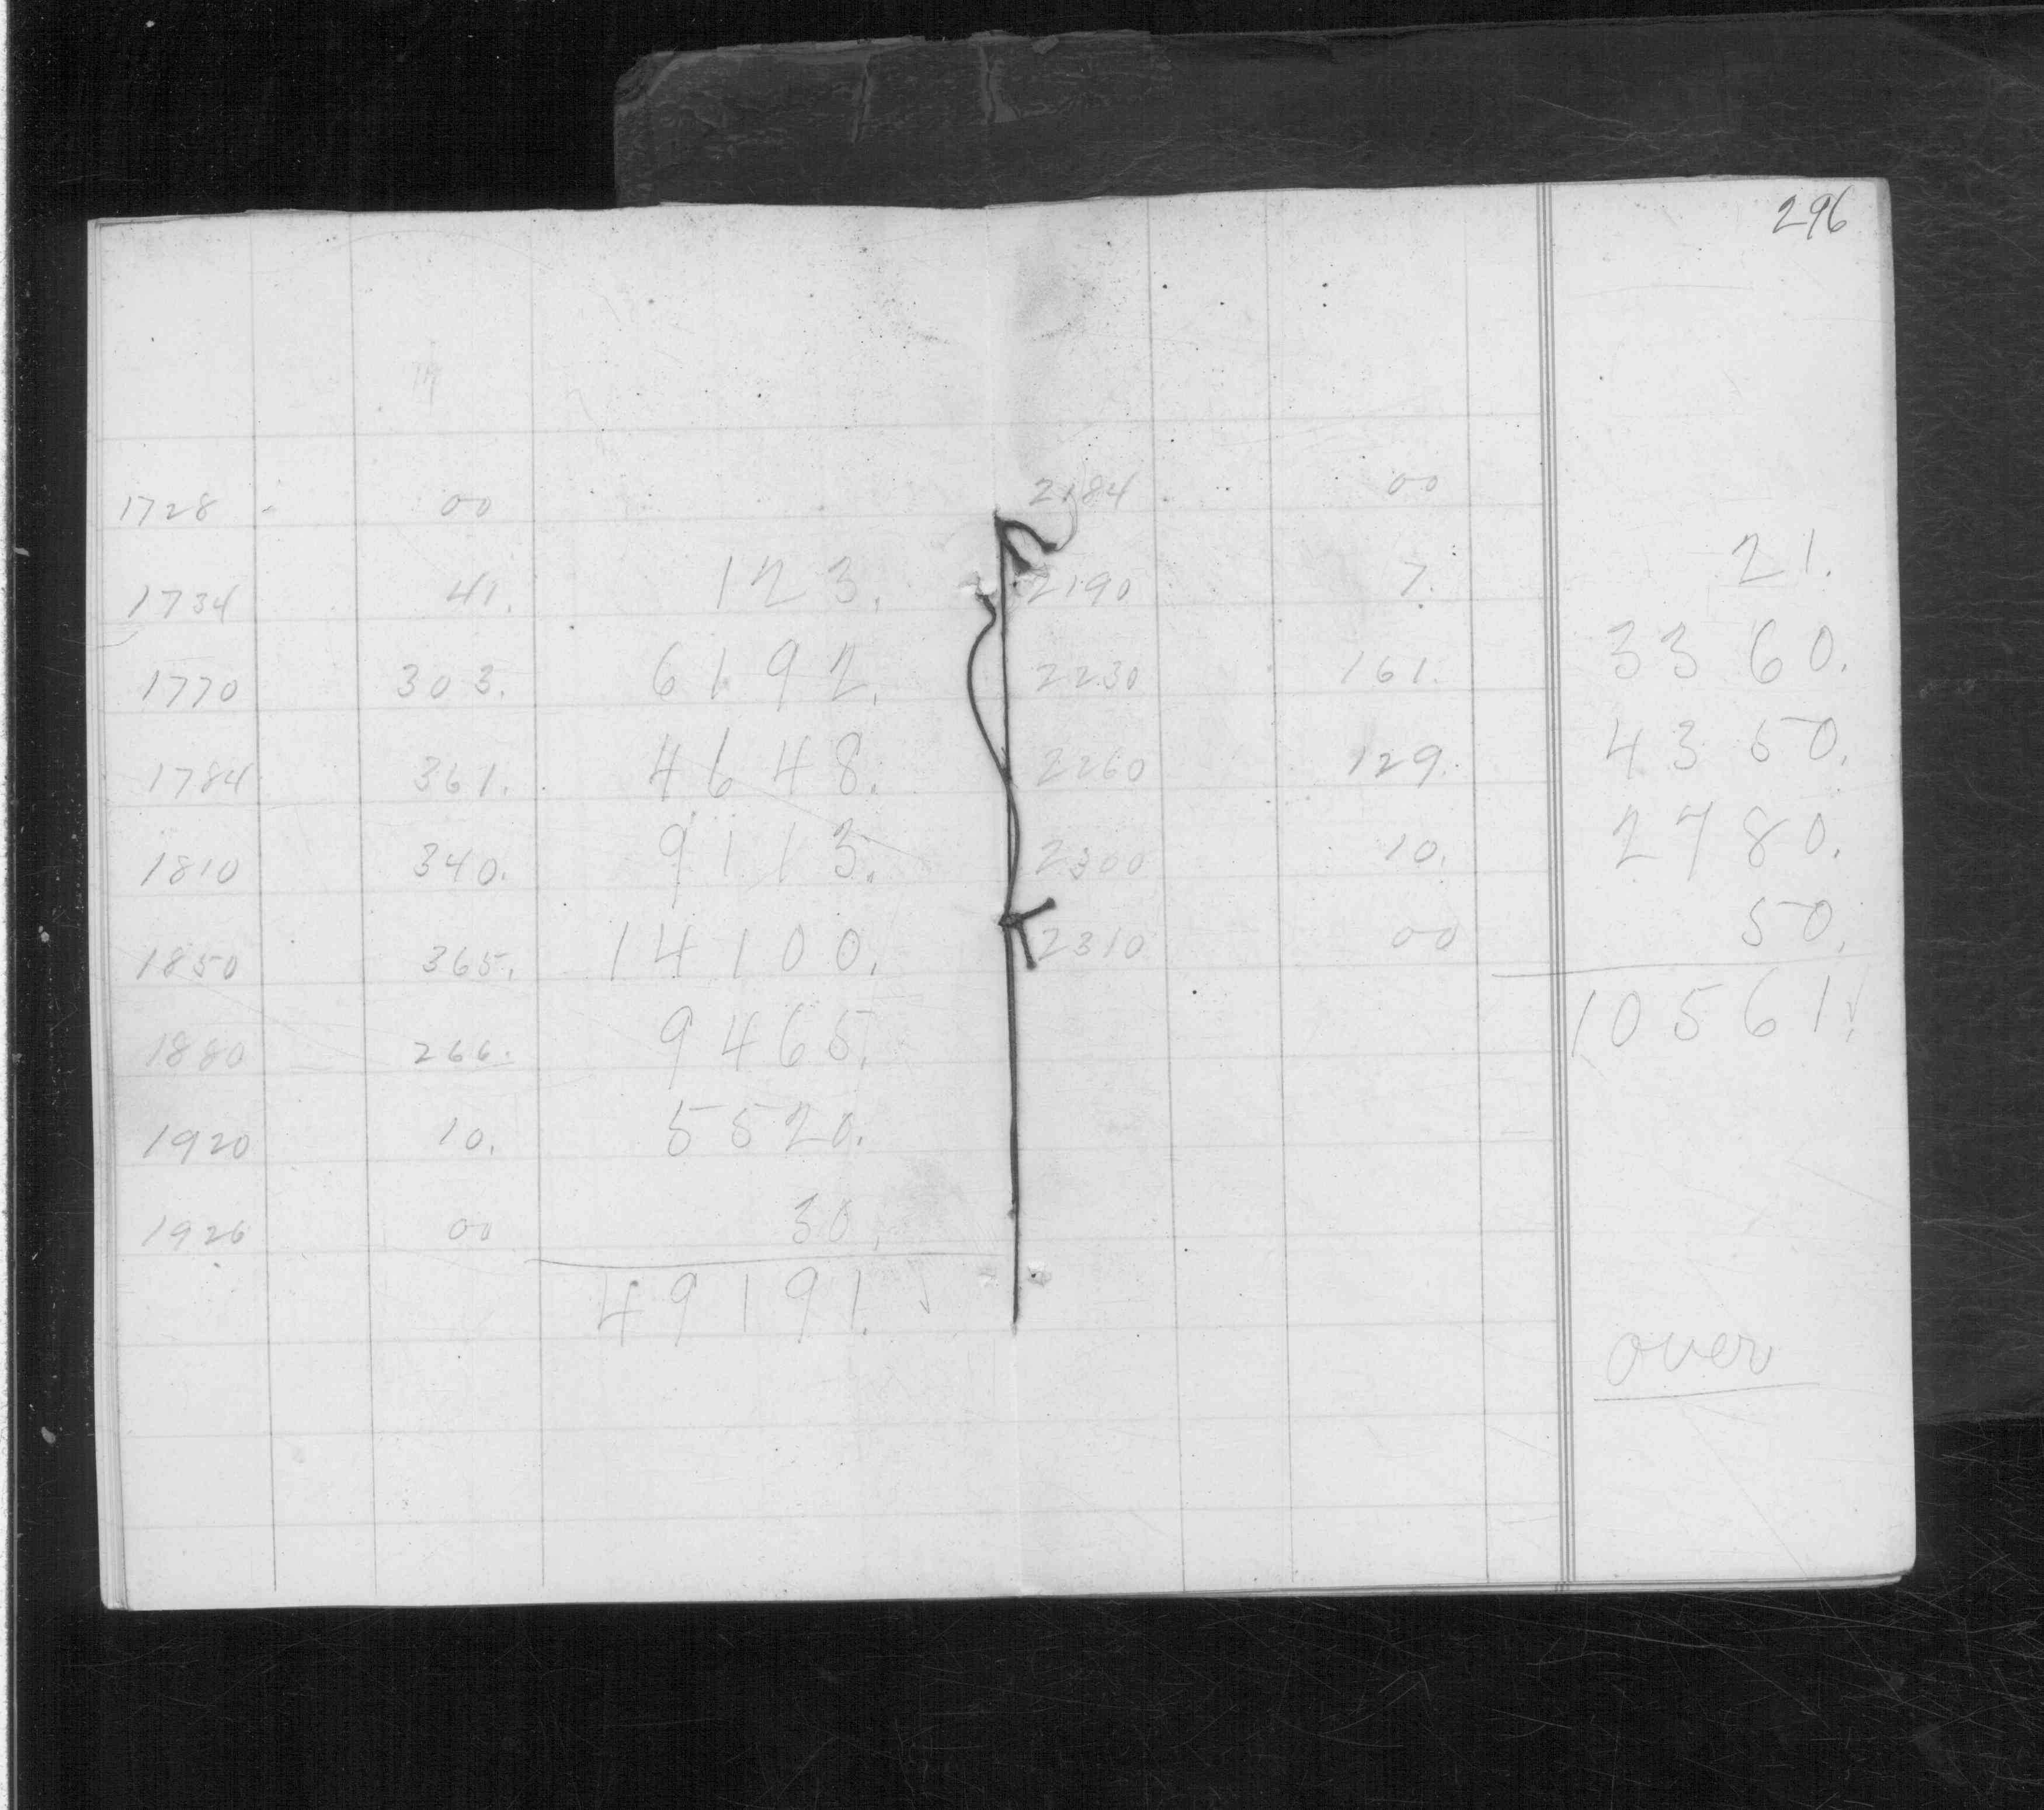 1728 - 00
1734 41. 123.
1770 303. 6192.
1784 361. 4648.
1810 340. 9113.
1850 365. 14100.
1880 266. 9465.
1920 10. 5520.
1926 00 30.
49191. ✓
296
2184 00
2190 7. 21.
2230 161. 3360.
2260 129. 4350.
2300 10. 2780.
2310 00 50.
10561. ✓
over